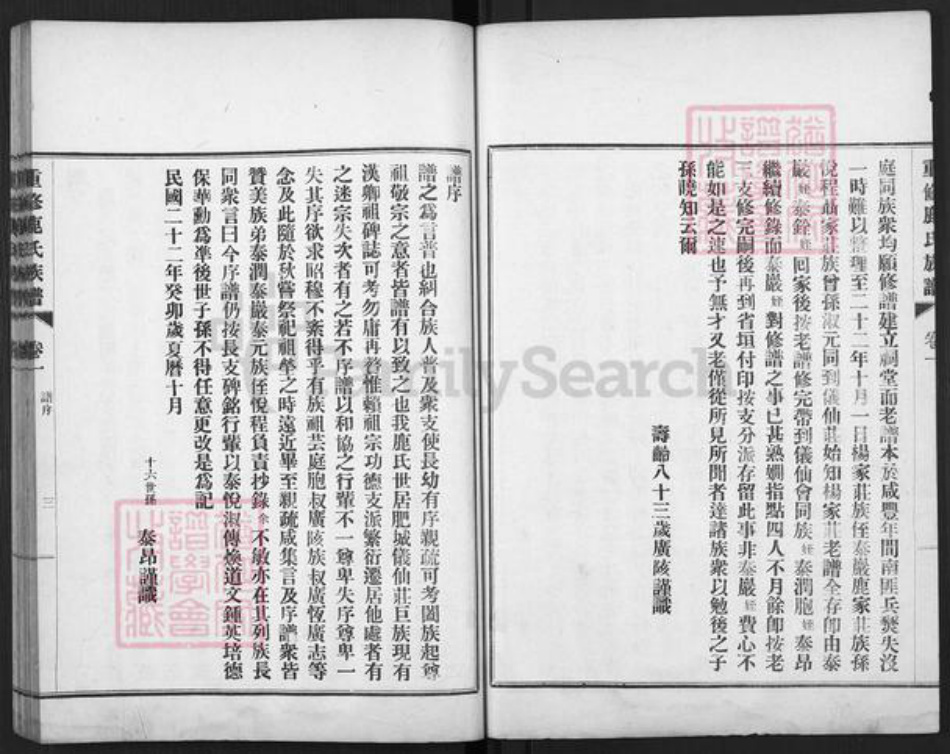 庭同族衆均願修譜建立祠堂而老譜本於咸豐年間南匪兵燹失沒
一時難以整理至二十二年十月一日楊家莊族侄泰嚴鹿家莊族孫
悅程聶家莊族曾孫淑元同到儀仙莊始知楊家莊老譜全存卽由泰
嚴姪泰銓姪回家後按老譜修完帶到儀仙會同族姪泰潤胞姪泰昂
繼續修錄而泰嚴姪對修譜之事已甚熟嫻指點四人不月餘卽按老
三支修完嗣後再到省垣付印按支分派存留此事非泰嚴姪費心不
能如是之速也予無才又老僅從所見所聞者達諸族衆以勉後之子
孫曉知云爾
壽齡八十三歲廣陔謹識
重修鹿氏族譜 卷一
譜序
譜之爲言普也糾合族人普及衆支使長幼有序親疏可考闔族起尊
祖敬宗之意者皆譜有以致之也我鹿氏世居肥城儀仙莊巨族現有
漢卿祖碑誌可考勿庸再贅惟賴祖宗功德支派繁衍遷居他處者有
之迷宗失次者有之若不序譜以和協之行輩不一尊卑失序尊卑一
失其序欲求昭穆不紊得乎有族祖芸庭胞叔廣陔族叔廣恆廣志等
念及此隨於秋嘗祭祀祖塋之時遠近畢至親疏咸集言及序譜衆皆
贊美族弟泰潤泰嚴泰元族侄悅程負責抄錄余不敏亦在其列族長
同衆言曰今序譜仍按長支碑銘行輩以泰悅淑傳煥道文鍾英培德
保華勳爲準後世子孫不得任意更改是爲記
民國二十二年癸卯歲夏曆十月
十六世孫 泰昂謹識
重修鹿氏族譜 卷一 譜序 三
FamilySearch